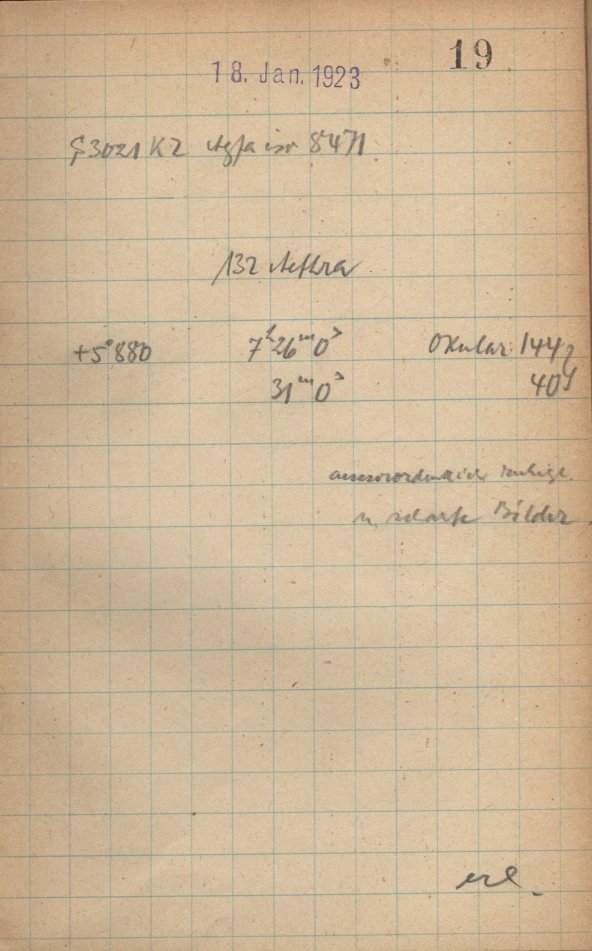 19
18. Jan. 1923
S3021 K2 Agfa iso 8471
132 Aethra
+5°880 7h26m0s Okular 144
31m0s 40
ausserordentlich ruhige
u. scharfe Bilder